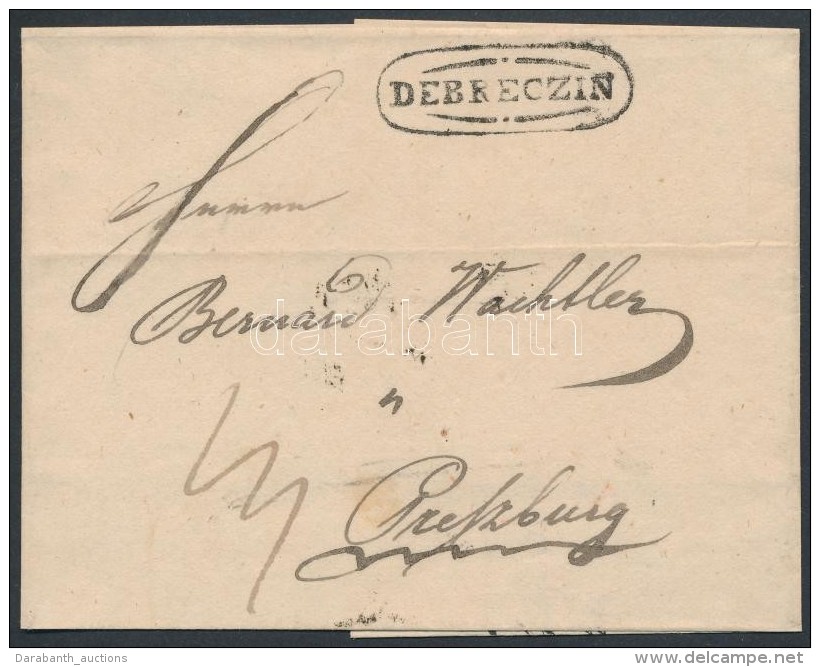 DEBRECZIN
Herrn
Bernard Wachtler
darabanth
Preßburg
Darabanth_auctions
delcampe.net